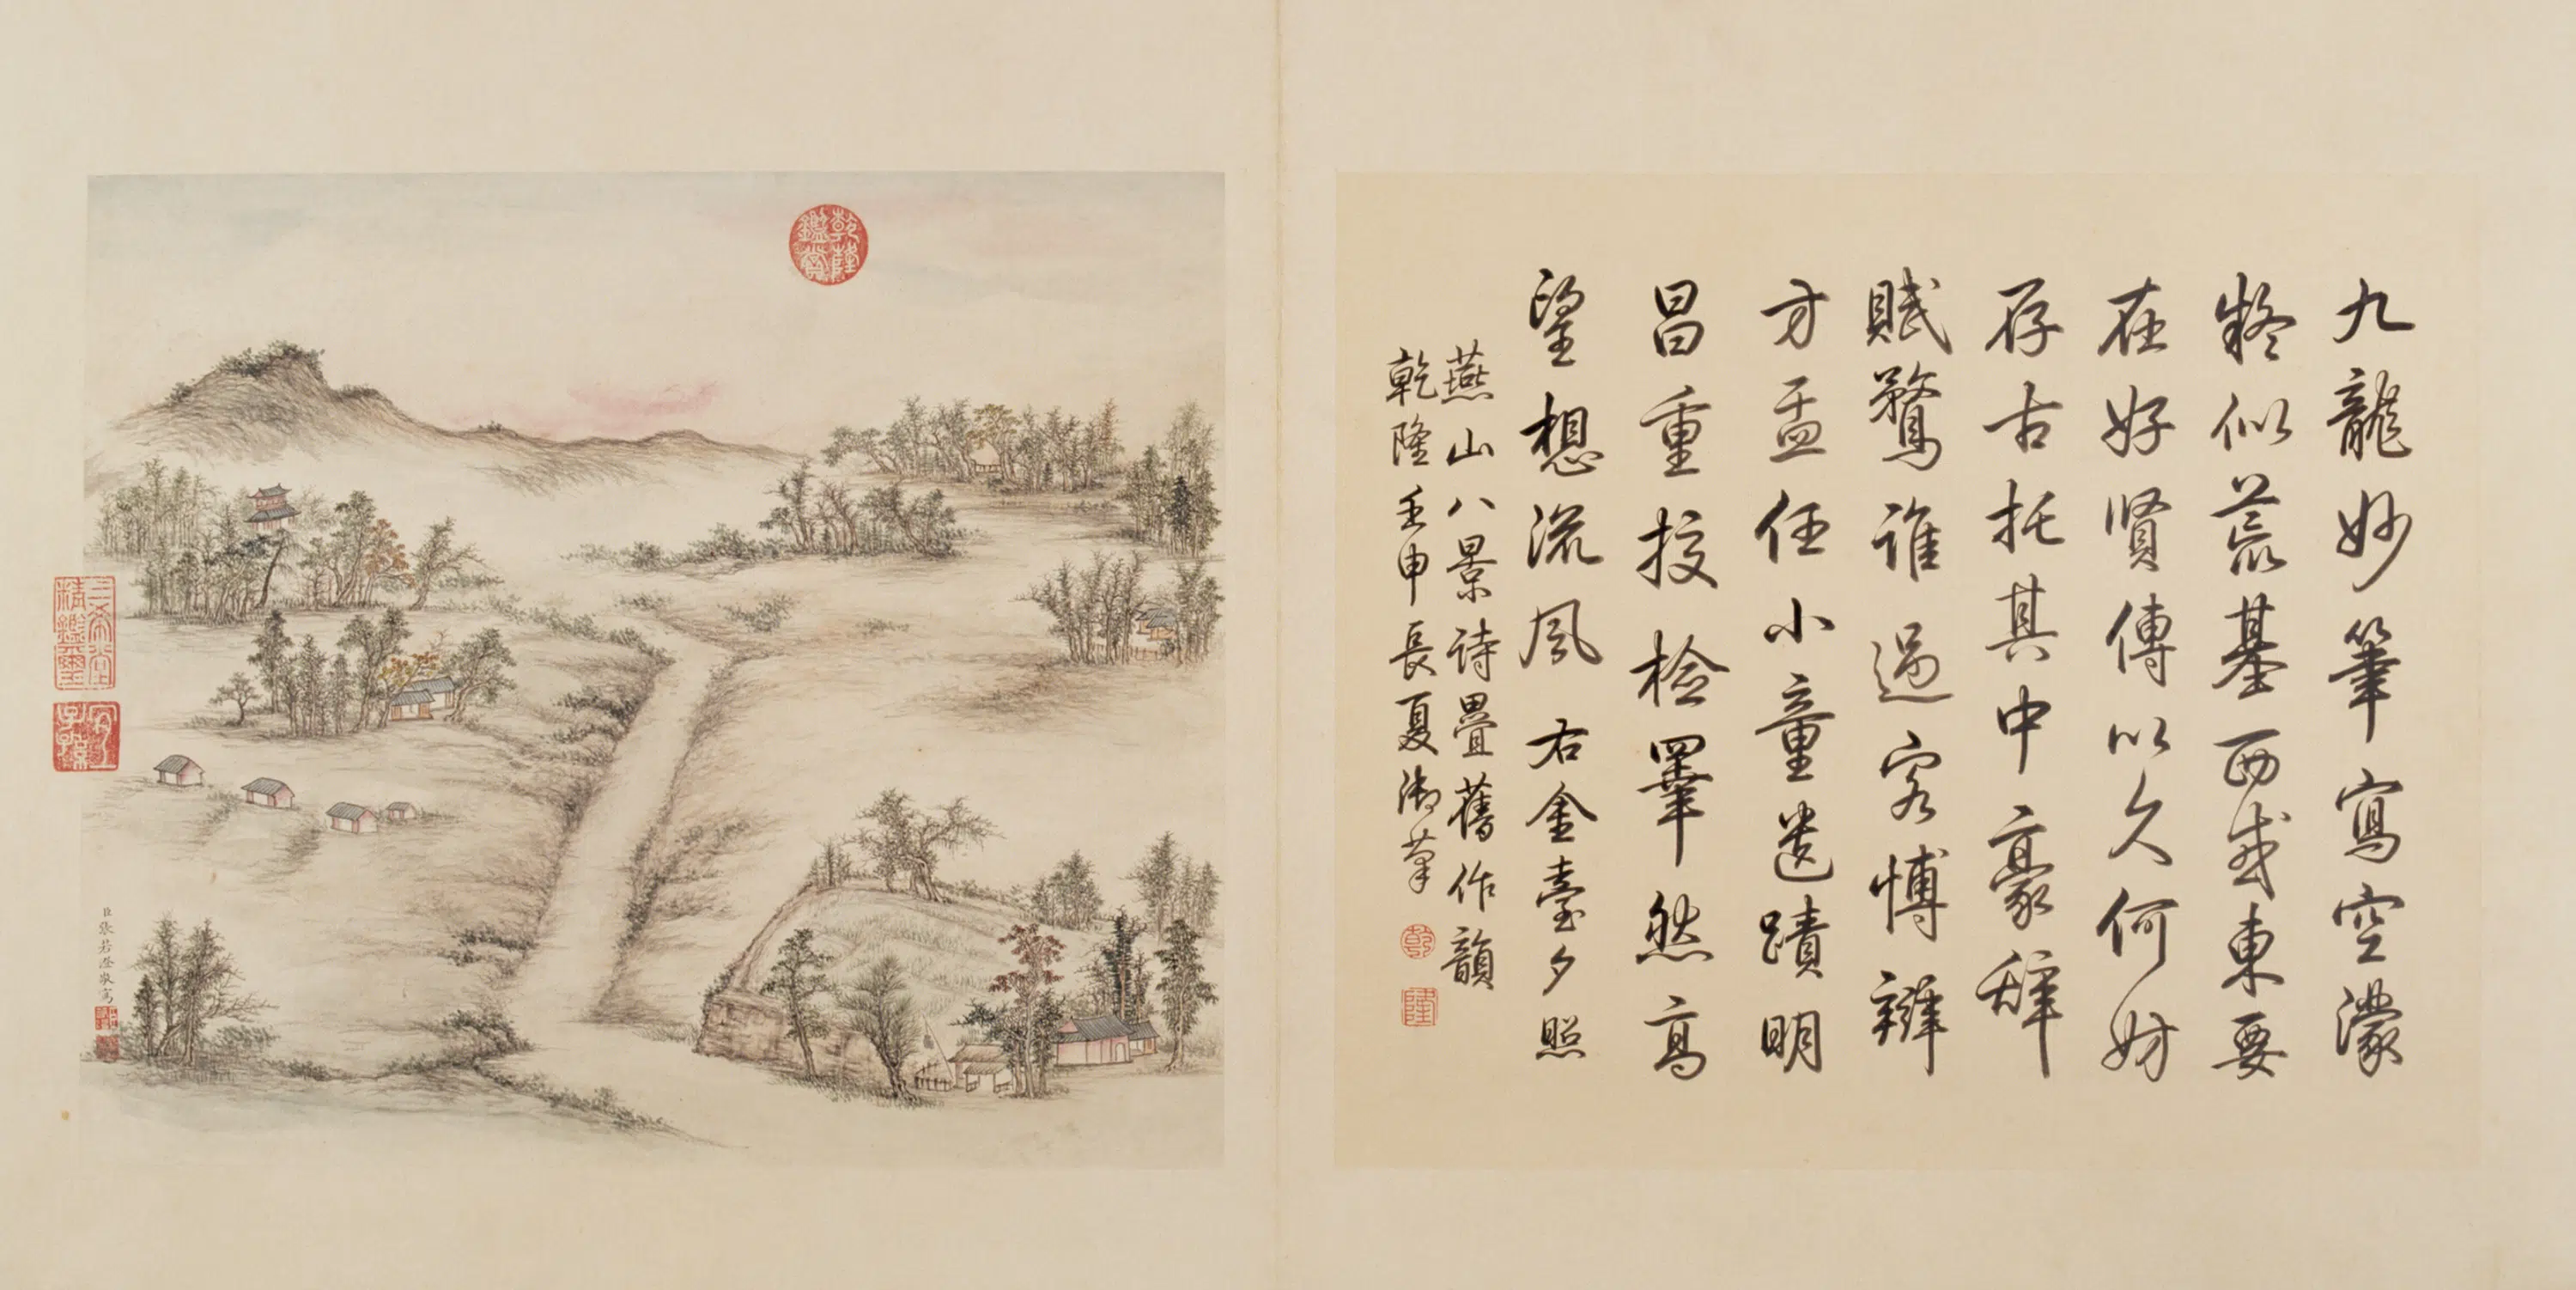 九龍妙筆寫空濛
疑似荒基西或東要
在好賢傳以久何妨
存古托其中豪辭
賦鶩誰過客博辯
方盂任小童遺蹟明
昌重挍檢睪然高
望想流風 右金臺夕照
燕山八景詩疊舊作韻
乾隆壬申長夏御筆
乾
隆
乾隆鑑賞
三希堂精鑑璽
宜子孫
臣張若澄敬寫